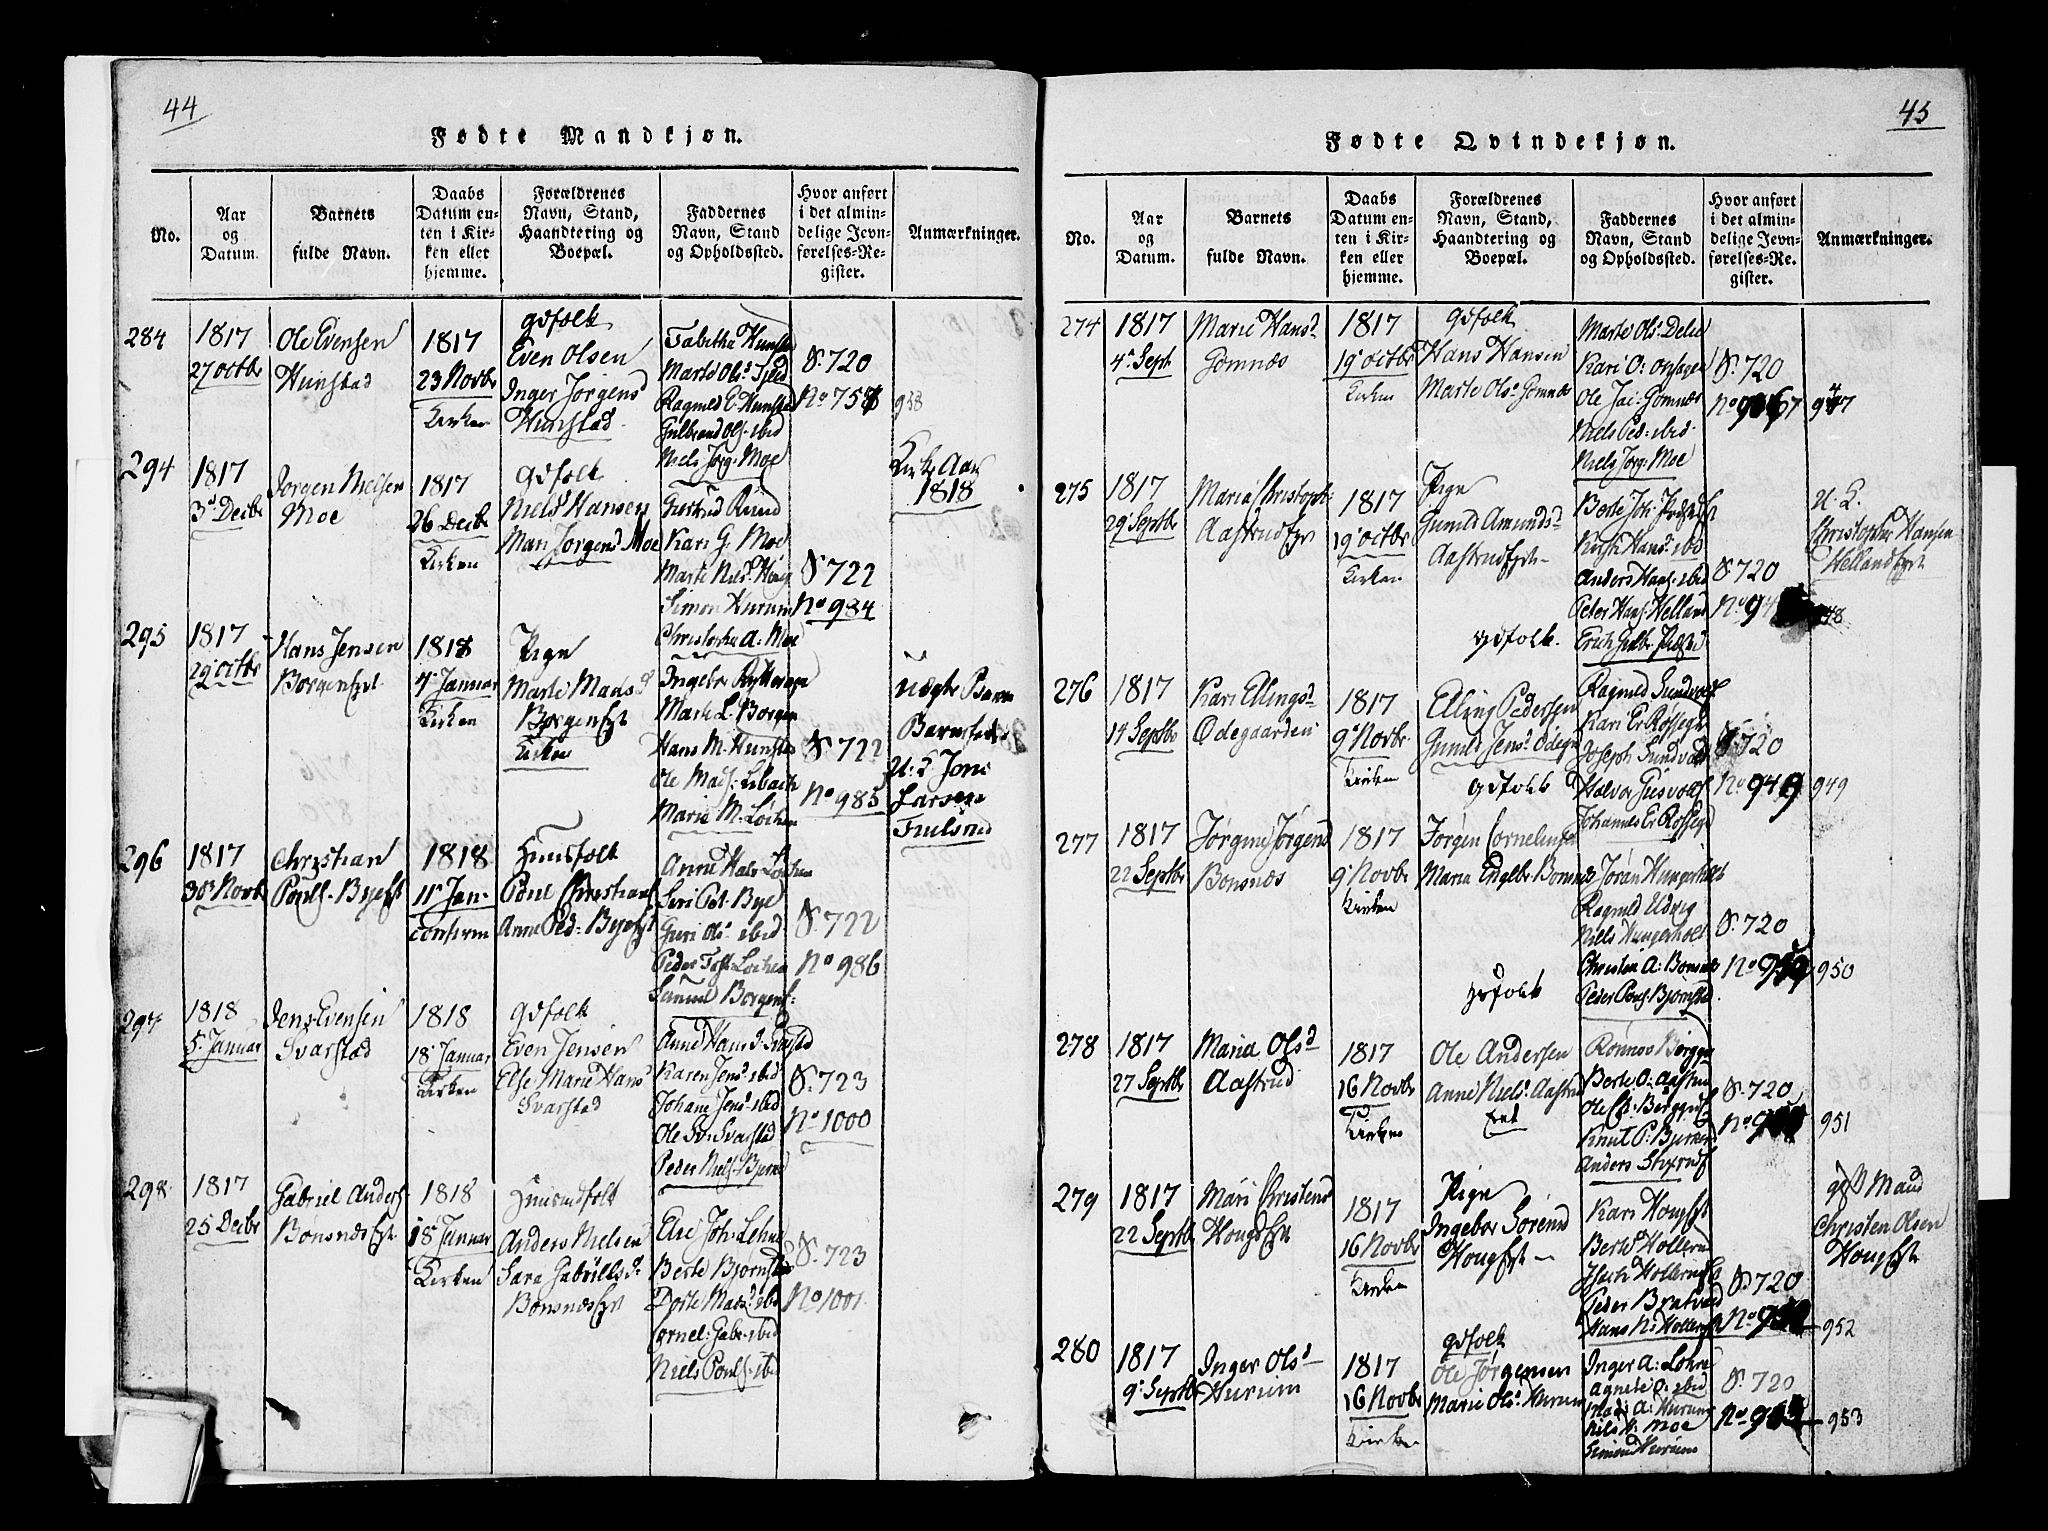 44
Fødte Mandkjøn.
No.
Aar
og
Datum.
Barnets
fulde Navn.
Daabs
Datum en-
ten i Kir-
ken eller
hjemme.
Forældrenes
Navn, Stand,
Haandtering og
Boepæl.
Faddernes
Navn, Stand
og Opholdssted.
Hvor anført
i det almin-
delige Jevn-
førelses-Re-
gister.
Anmærkninger.
284
1817
27 octbr
Ole Evensen
Hunstad
1817
23 Novbr
Kirken
Gdfolk
Even Olsen
Inger Jørgensd
Hunstad
Tabitha Hunstad
Marte Olsd
Ragnild E. Hunstad
Gulbrand Ols. ibid
Niels Jørg. Moe
S. 720
No 758
938
294
1817
3 Decbr
Jørgen Nielsen
Moe
1817
26 Decbr
Kirken
Gdfolk
Niels Hansen
Mari Jorgensd Moe
Gertrud Rund
Kari G. Moe
Marte Nielsd
Simon Hurum
Christopher A. Moe
S. 722
No 984
Kirke Aar
1818
295
1817
29 octbr
Hans Jensen
Borgenejet
1818
4 Januar
Kirken
Pige
Marte Madsd
Borgenejet
Kirken
Ingebr
Marte L. Borgen
Hans M. Hunstad
Ole Mads. Lobach
Marie M. Løchen
S. 722
No 985
uægte Barn
Barnefader
U. L. Jens
Larsen
296
1817
30 Novbr
Christian
Povels. Byeejet
1818
11 Jan.
confirm
Huusfolk
Povel Christians
Anne Ped: Byeejet
Anne Hals Løchen
Siri Pet. Bye
Guri Ols ibid
Peder Tost. Lochen
Samuel Borgens:
S. 722
No 986
297
1818
5 Januar
Jens Evensen
Svarstad
1818
18 Januar
Kirken
Gdfolk
Even Jensen
Else Marie Hans
Svarstad
Anne Hansd. Svarstad
Karen Jens. ibid
Johane Jens. ibid
Ole Sv. Svarstad
Peder Niels.
S. 723
No 1000
298
1817
25 Decbr
Gabriel Anders
Bonsnæsejet
1818
18 Januar
Kirken
Huusmdfolk
Anders Nielsen
Sara Gabriels
Bonsnæsejet
Else Joh. Lehne
Berte Bjornstad
Dorte Mats. ibid
Cornel: Gabr. ibid
Niels Povels. ibid
S. 723
No 1001
45
Fødte Qvindekjøn.
No.
Aar
og
Datum.
Barnets
fulde Navn.
Daabs
Datum en-
ten i Kir-
ken eller
hjemme.
Forældrenes
Navn, Stand,
Haandtering og
Boepæl.
Faddernes
Navn, Stand
og Opholdssted.
Hvor anført
i det almin-
delige Jevn-
førelses-Re-
gister.
Anmærkninger.
274
1817
4 Sept
Marie Hansd
Gomnæs
1817
19 octbr
Kirken
Gdfolk
Hans Hansen
Marte Ols Gomnæs
Marte Ols. Delie
Kari O: opsagen
Ole Jac: Gomnæs
Niels Ped: ibid
Niels Jørg: Moe
S. 720
947
275
1817
29 Septbr
Maria Christoph
Aastrudejet
1817
19 octbr
Kirken
Pige
Gunild Amundsd
Aastrudejet
Berte Joh:
Kirsti Hans: ibid
Anders Hans. ibid
Peter Hans. Helland
Erich Gulbr.
S 720
948
U. K.
Christopher Hansen
Hellandejet
276
1817
14 Septbr
Kari Ellingsd
Odegaarden
1817
9 Novbr
Kirken
Gdfolk
Elling Pedersen
Gunild Jens: Odegn
Ragnild Sundvold
Kari Er Røssegd
Joseph Sundvold
Halvor Giisvold
Johannes Er Røssegd
S. 720
No 949
949
277
1817
22 Septbr
Jørgine Jørgensd
Bonsnæs
1817
9 Novbr
Kirken
Gdfolk
Jørgen Cornelius
Maria Engelbr Bonsnæs
Jøran Hungerholt
Ragnild Udvig
Niels Hungerholt
Christen A: Bonsnæs
Peder Povls. Bjornstad
S. 720
950
278
1817
27 Septbr
Maria Olsd
Aastrud
1817
16 Novbr
Kirken
Gdfolk
Ole Andersen
Anne Niels: Aastrud
Ronnoe
Berte O. Aastrud
Knut P.
Anders
S. 720
951
279
1817
22 Septbr
Mari Christensd
Hougsejet
1817
16 Novbr
Kirken
Pige
Ingebor Sørensd
Hougsejet
Kari Hougsejet
Berte Hollerud
Peder
Hans N. Hollerud
S. 720
952
gift Mand
Christen Olsen
Hougsejet
280
1817
9 Septbr
Inger Olsd
Hurum
1817
16 Novbr
Kirken
Gdfolk
Ole Jørgensen
Marie Ols: Hurum
Inger A: Lohre
Agnete O. ibid
Mari A: Hurum
Niels H. Moe
Simon Hurum
S. 720
953